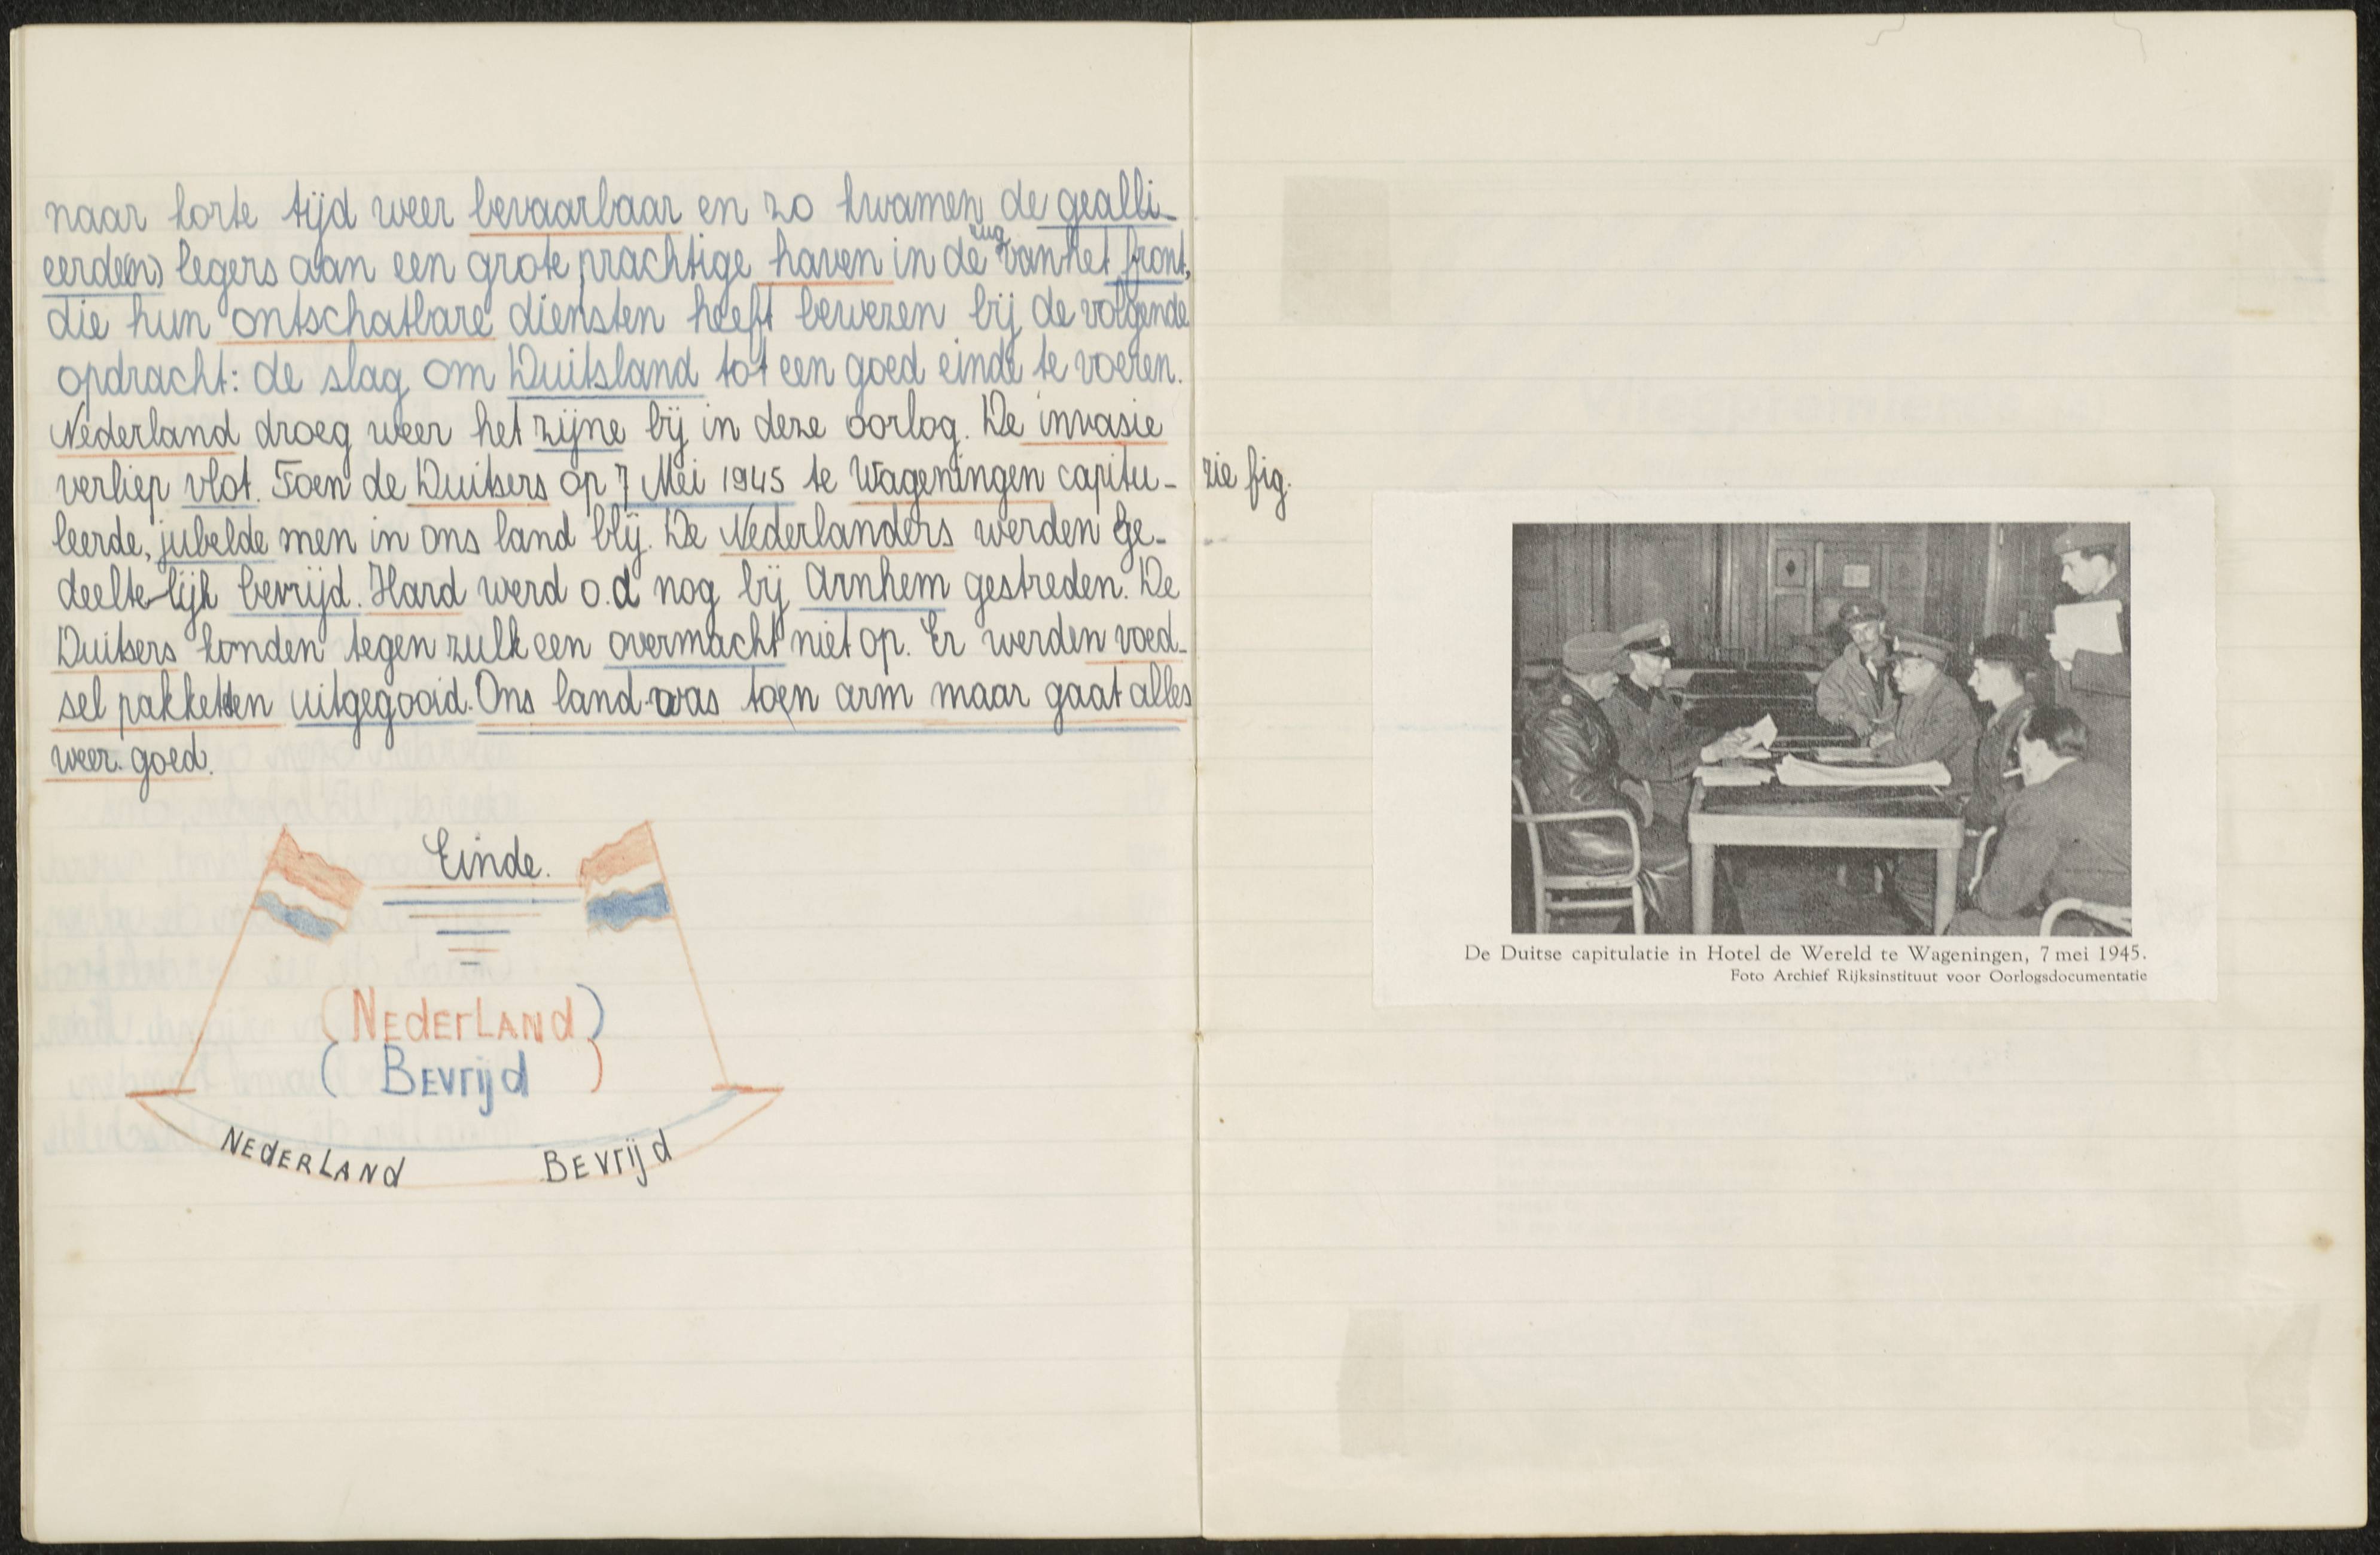 naar korte tijd weer bevaarbaar en zo kwamen de gealli-
eerde(n) legers aan een grote prachtige haven in de rug van het front,
die hun ontschatbare diensten heeft bewezen bij de volgende
opdracht: de slag om Duitsland tot een goed einde te voeren.
Nederland droeg weer het zijne bij in deze oorlog. De invasie
verliep vlot. Toen de Duitsers op 7 Mei 1945 te Wageningen capitu-
leerde, jubelde men in ons land blij. De Nederlanders werden ge-
deelte-lijk bevrijd. Hard werd o.a nog bij Arnhem gestreden. De
Duitsers konden tegen zulk een overmacht niet op. Er werden voed-
sel pakketten uitgegooid. Ons land was toen arm maar gaat alles
weer goed.
Einde.
(Nederland)
(Bevrijd)
Nederland Bevrijd
zie fig.
De Duitse capitulatie in Hotel de Wereld te Wageningen, 7 mei 1945.
Foto Archief Rijksinstituut voor Oorlogsdocumentatie